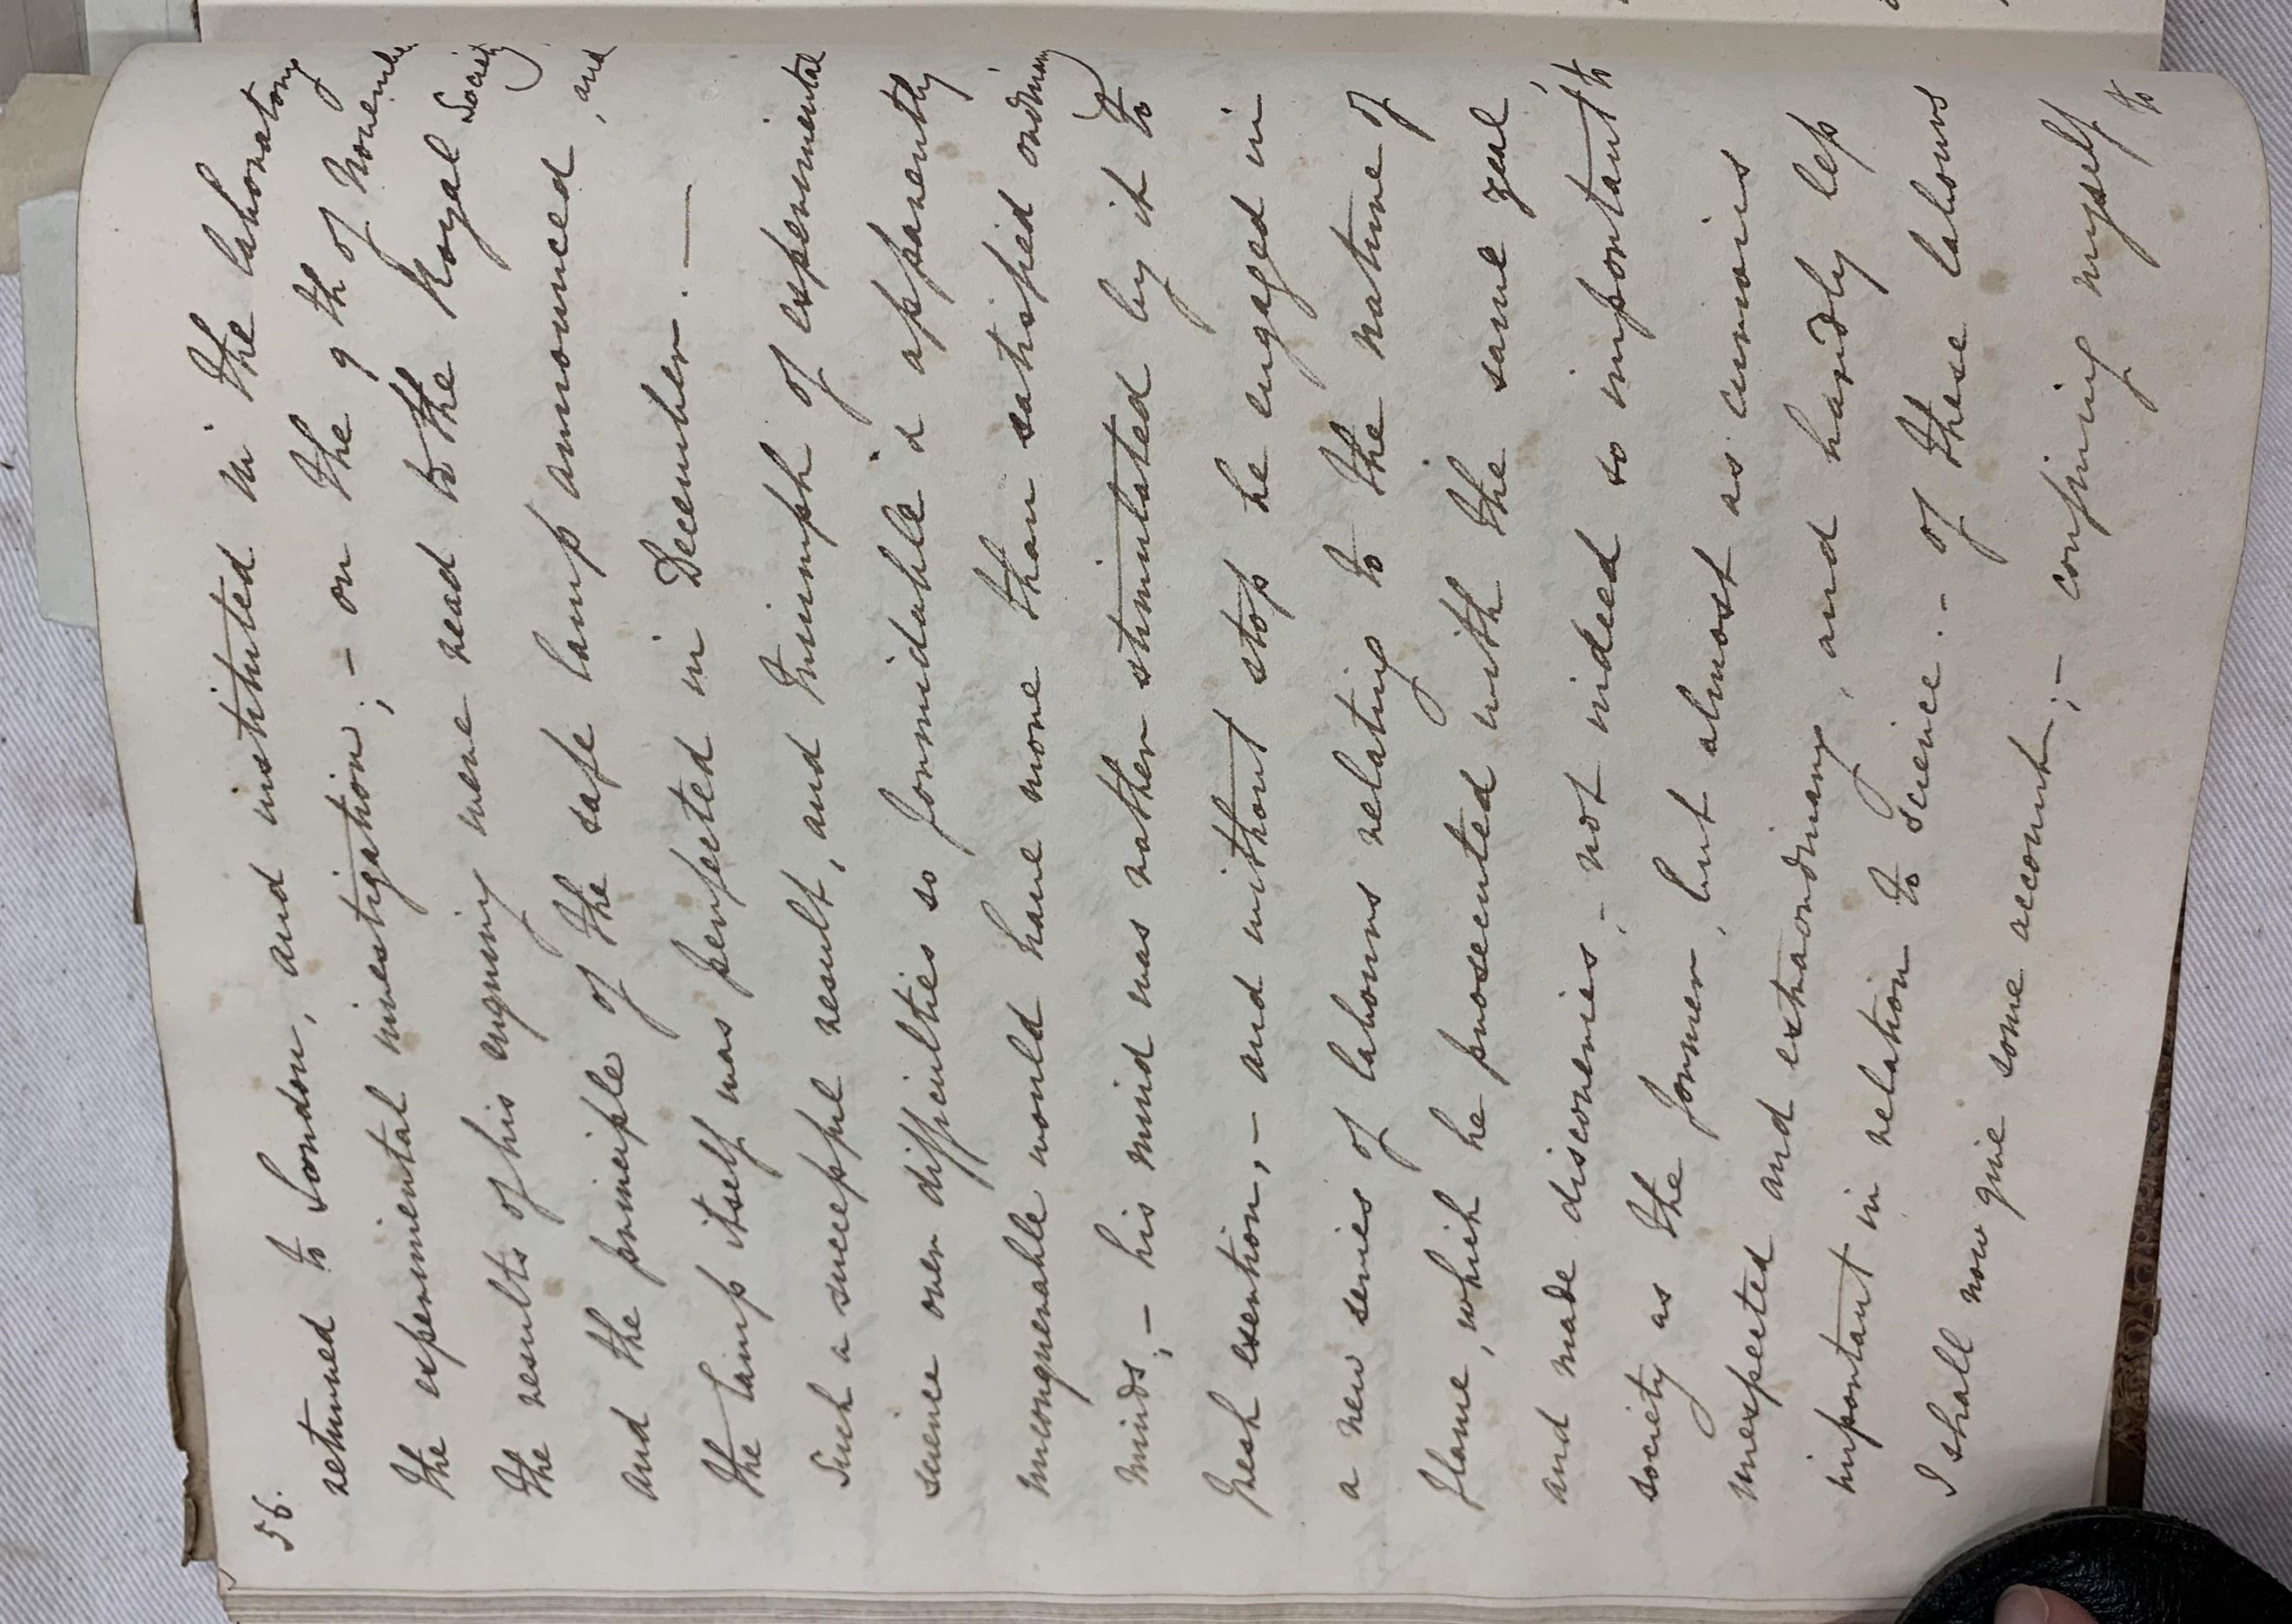 56.
returned to London, and instituted in the laboratory
the experimental investigation; - on the 9th of November
the results of his enquiry were read to the Royal Society
and the principle of the safe lamp announced, and
the lamp itself was perfected in December. —
Such a successful result, and triumph of experimental
science over difficulties so formidable & apparently
unconquerable would have more than satisfied ordinary
minds; - his mind was rather stimulated by it to
fresh exertion, - and without stop he engaged in
a new series of labours relating to the nature of
flame, which he prosecuted with the same zeal,
and made discoveries, - not indeed so important to
society as the former, but almost as curious
unexpected and extraordinary, and hardly less
important in relation to science. - of these labours
I shall now give some account; - confining myself
to